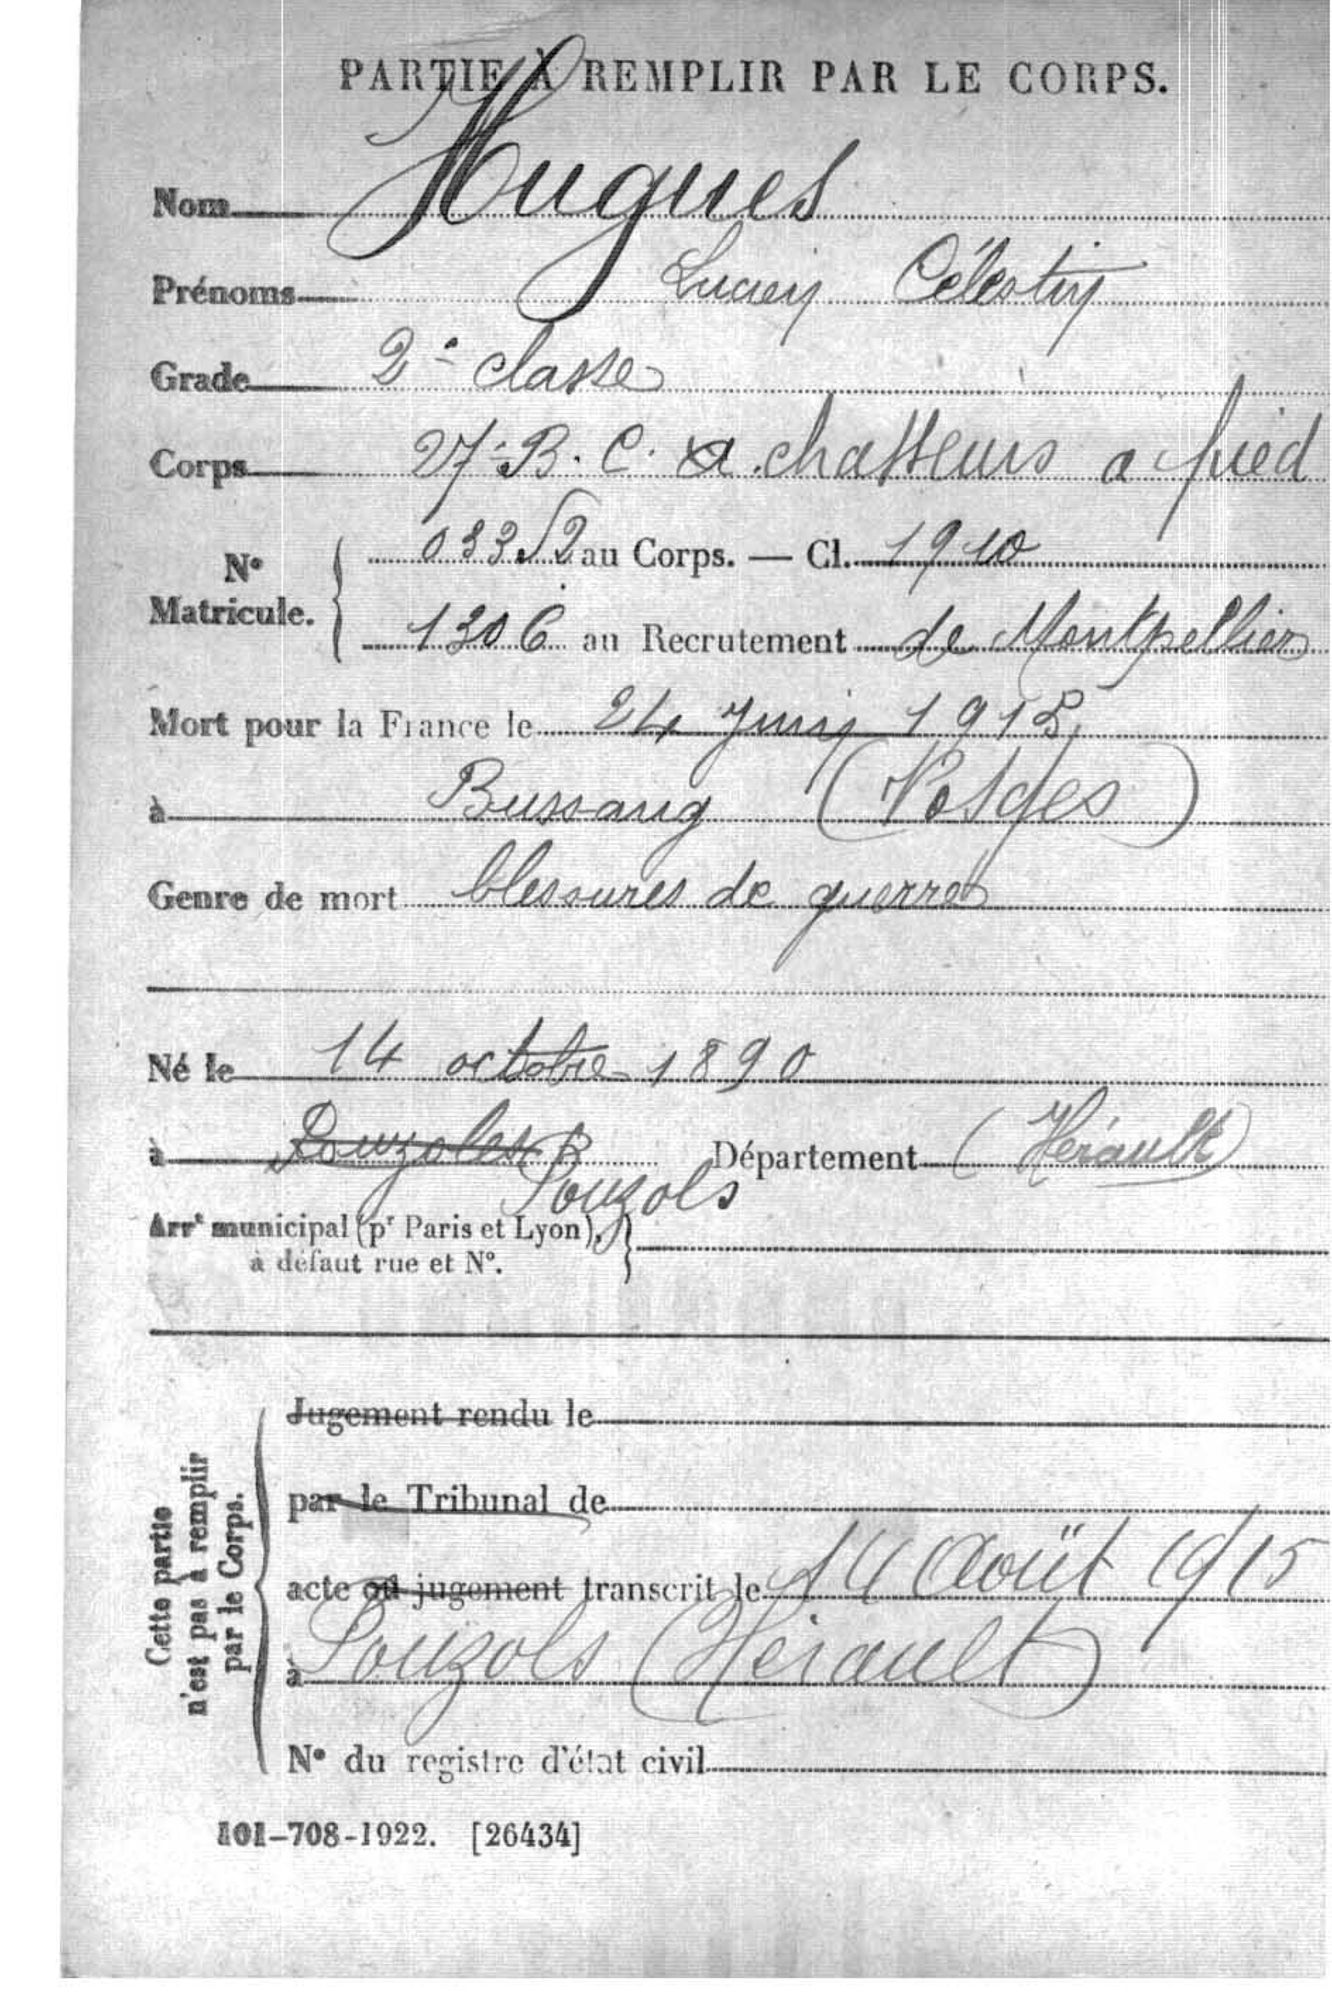 PARTIE À REMPLIR PAR LE CORPS.
Nom Hugues
Prénoms Lucien Célestin
Grade 2e classe
Corps 27e B. C. a chasseurs a pied
No Matricule. 03352 au Corps. — Cl. 1910
1306 au Recrutement de Montpellier
Mort pour la France le 24 Juin 1915
à Bussang (Vosges)
Genre de mort blessures de guerre
Né le 14 octobre 1890
à Pouzoles Département (Hérault)
Pouzols
Arrt municipal (pr Paris et Lyon),
à défaut rue et No.
Cette partie
n'est pas à remplir
par le Corps.
Jugement rendu le
par le Tribunal de
acte ou jugement transcrit le 14 Août 1915
à Pouzols (Hérault)
No du registre d'état civil
101-708-1922. [26434]